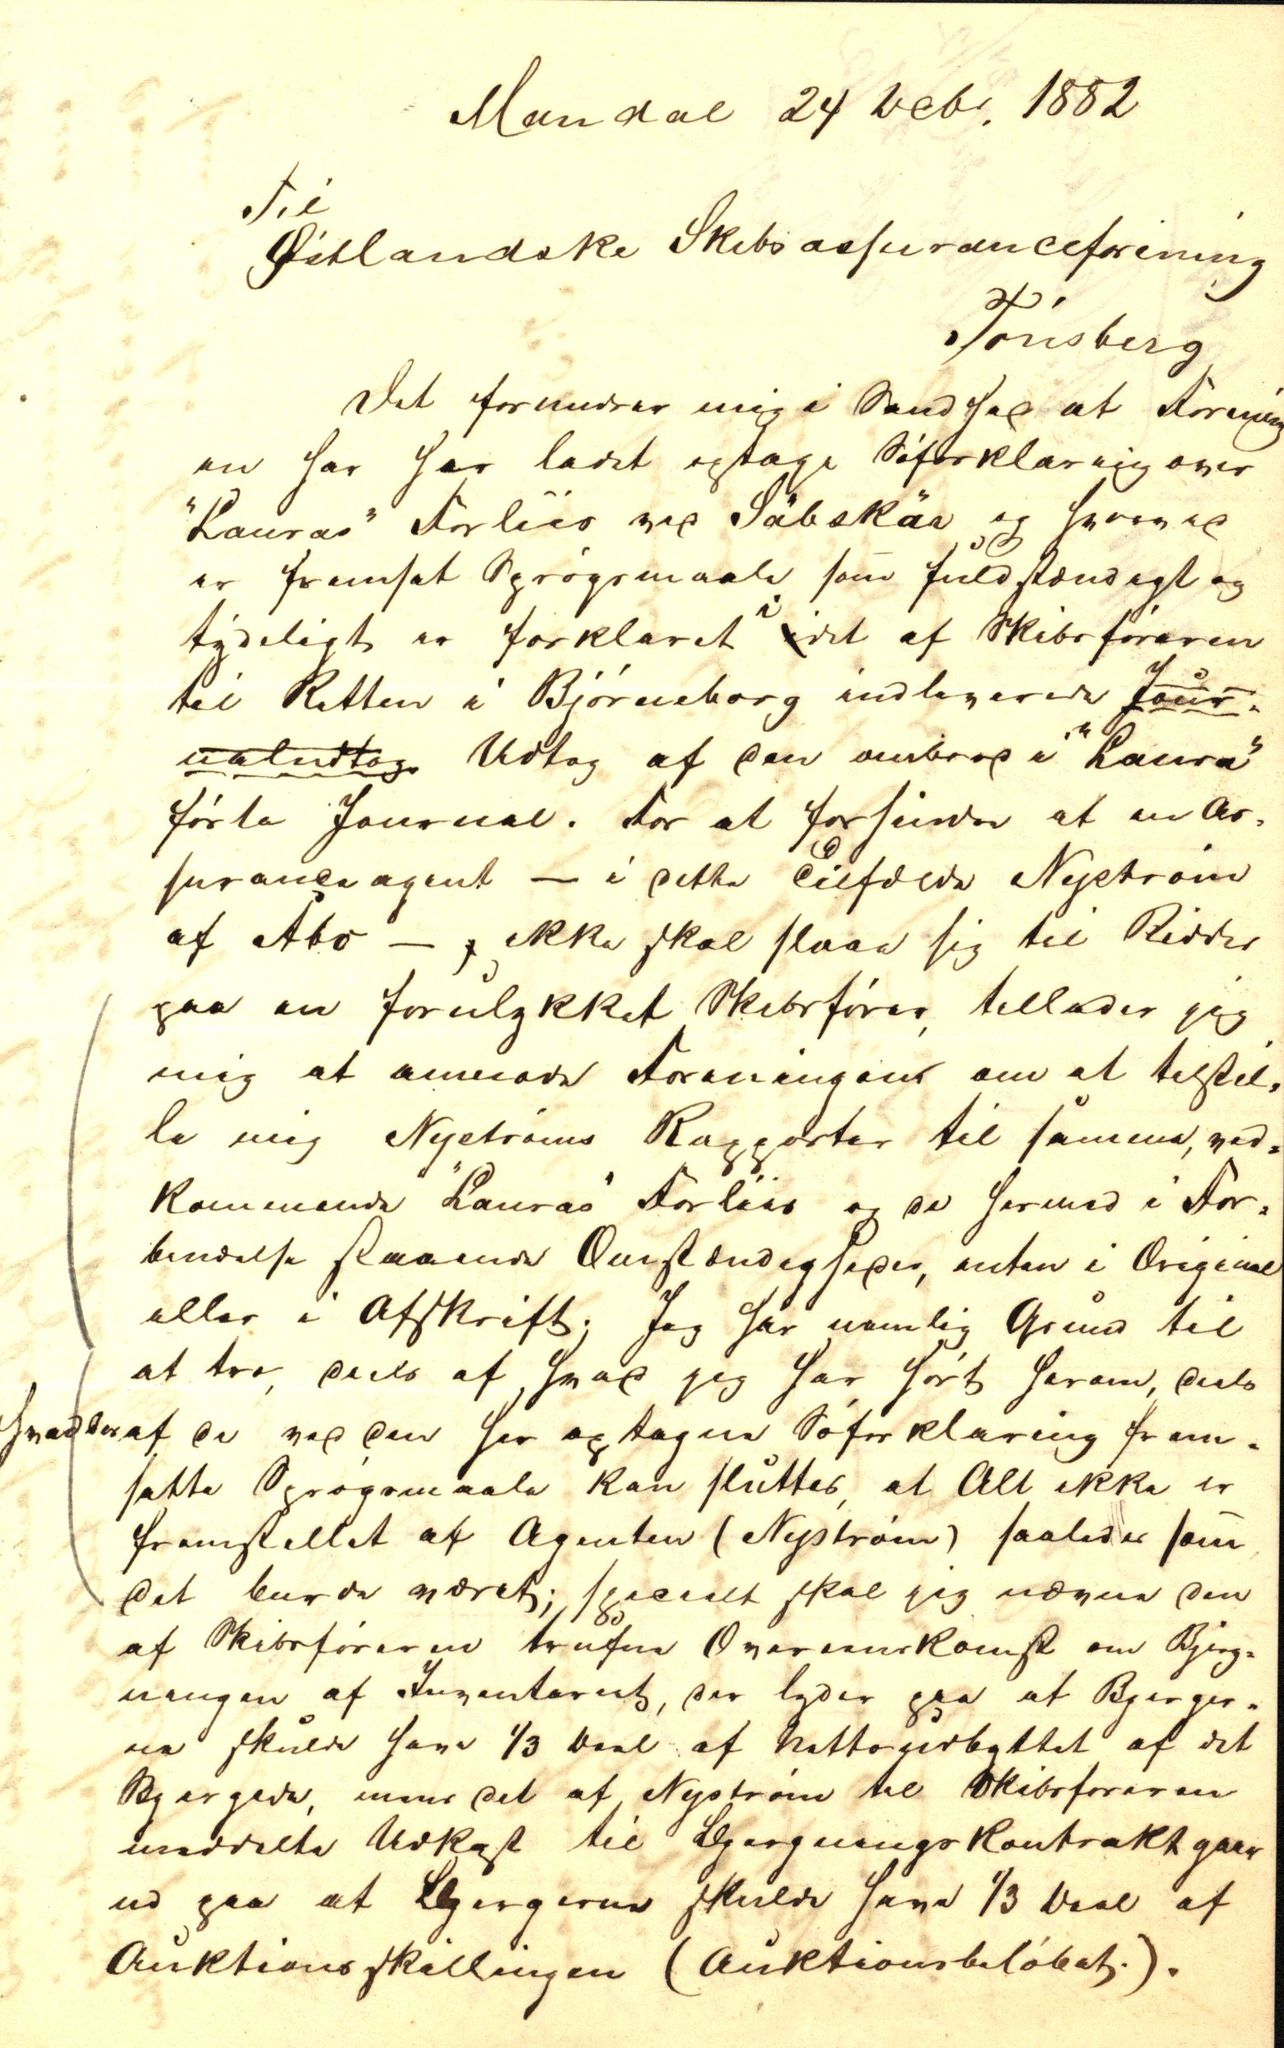 Mandal 24 Decbr. 1882
Til
Østlandske Skibsassuranceforening
Tönsberg
Det forundrer mig i Sandhed at Forening
en har her ladet optage Söforklaring over
"Lauras" Forliis ved Säbskär og hvorved
er fremsat Sprögsmaale som fuldstændigt og
tydeligt er forklaret i det af Skibsföreren
til Retten i Björneborg indleverede Jour-
naludtog Udtog af den ombord i "Laura"
förte Journal. For at forhindre at en As-
suranceagent — i dette Tilfælde Nyström
af Åbo — ikke skal slaae sig til Ridder
paa en forulykket Skibsförer, tillader jeg
mig at anmode Foreningen om at tilstil-
le mig Nyströms Rapporter til samme, ved-
kommende "Lauras" Forliis og de hermed i For-
bindelse staaende Omstændigheder, enten i Original
eller i Afskrift; Jeg har nemlig Grund til
at tro, deels af hvad jeg har hört herom, deels
hvad der af de ved den her optagne Söforklaring frem-
satte Sprögsmaale kan sluttes, at Alt ikke er
fremstillet af Agenten (Nyström) saaledes som
det burde været; specielt skal jeg nævne den
af Skibsföreren trufne Overeenskomst om Bjerg-
ningen af Inventariet, der lyder paa at Bjerger-
ne skulde have 1/3 Deel af Nettoudbyttet af det
Bjergede, mens det af Nyström til Skibsföreren
meddelte Udkast til Bjergningskontrakt gaar
ud paa at Bjergerne skulde have 1/3 Deel af
Auktionsskillingen (Auktionsbelöbet.).